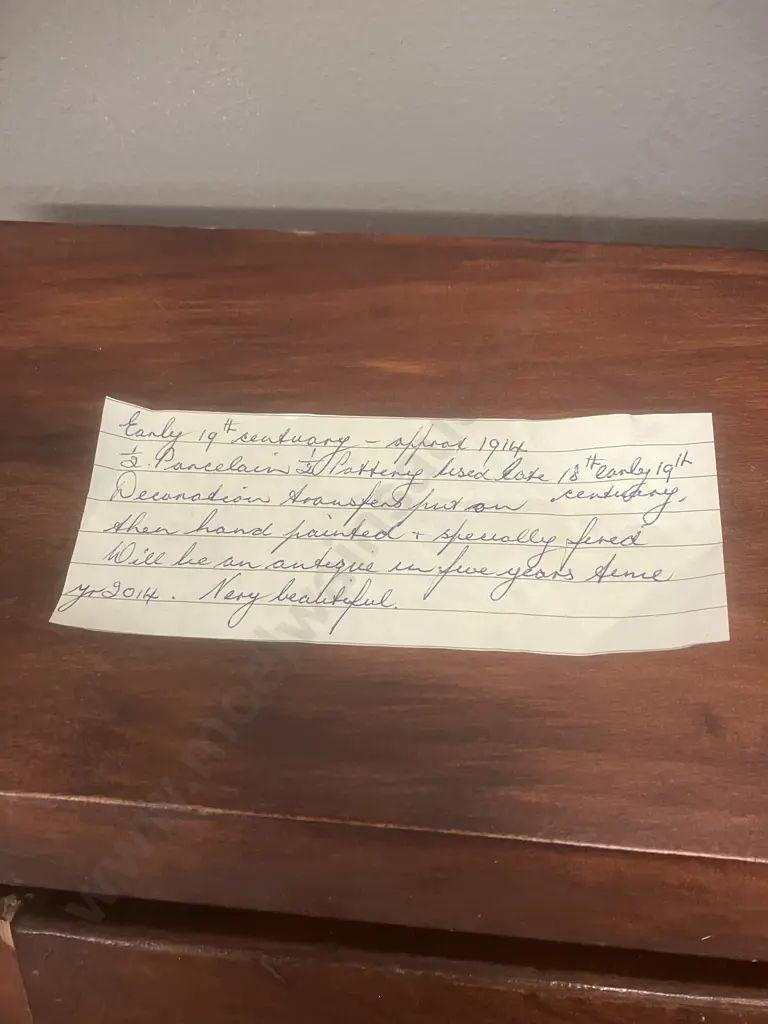 Early 19th centuary - approx 1914
½ Parcelain ½ Pottery used late 18th early 19th
centuary,
Decoration transfers put on
then hand painted + specially fired
Will be an antique in five years time
yr 2014. Very beautiful.